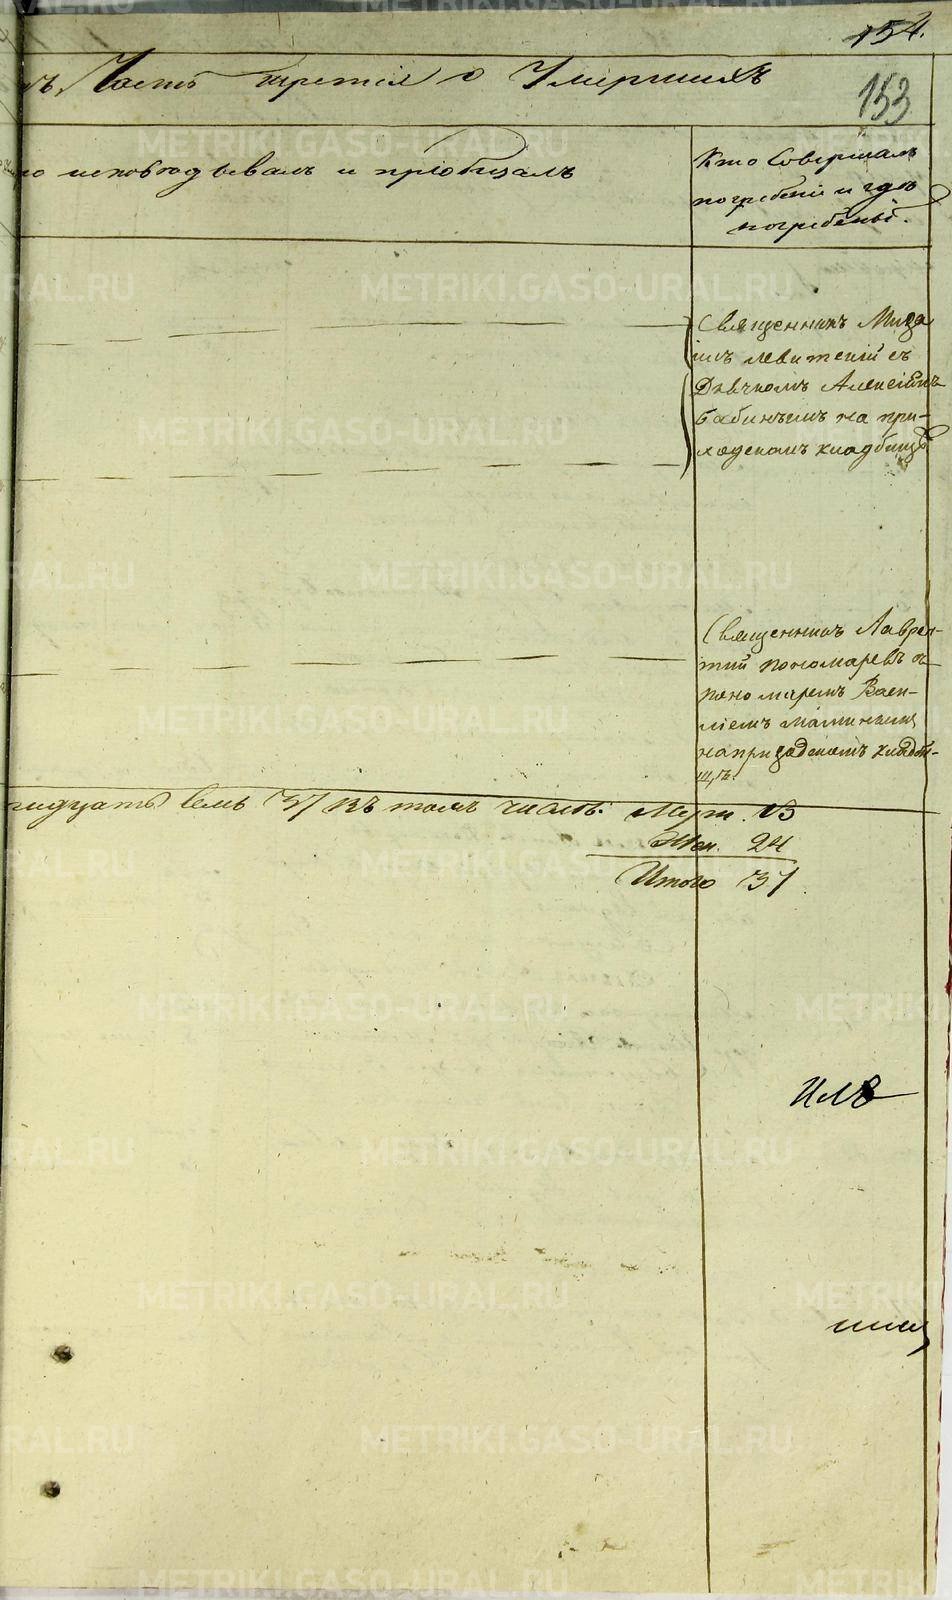 154.
153
Часть третія о Умершихъ
исповѣдывалъ и пріобщалъ
Кто Совершалъ
погребеніе и гдѣ
погребены.
Священникъ Миха
илъ Левитскій съ
Дьячкомъ Алексіемъ
Бабинымъ на при-
ходскомъ кладбищѣ
Священникъ Лаврен-
тій Пономаревъ съ
пономаремъ Васи-
ліемъ Маминымъ
на приходскомъ кладби-
щѣ.
тридцать семь 37 въ томъ числѣ: Муж. 13
Жен. 24
Итого 37
METRIKI.GASO-URAL.RU